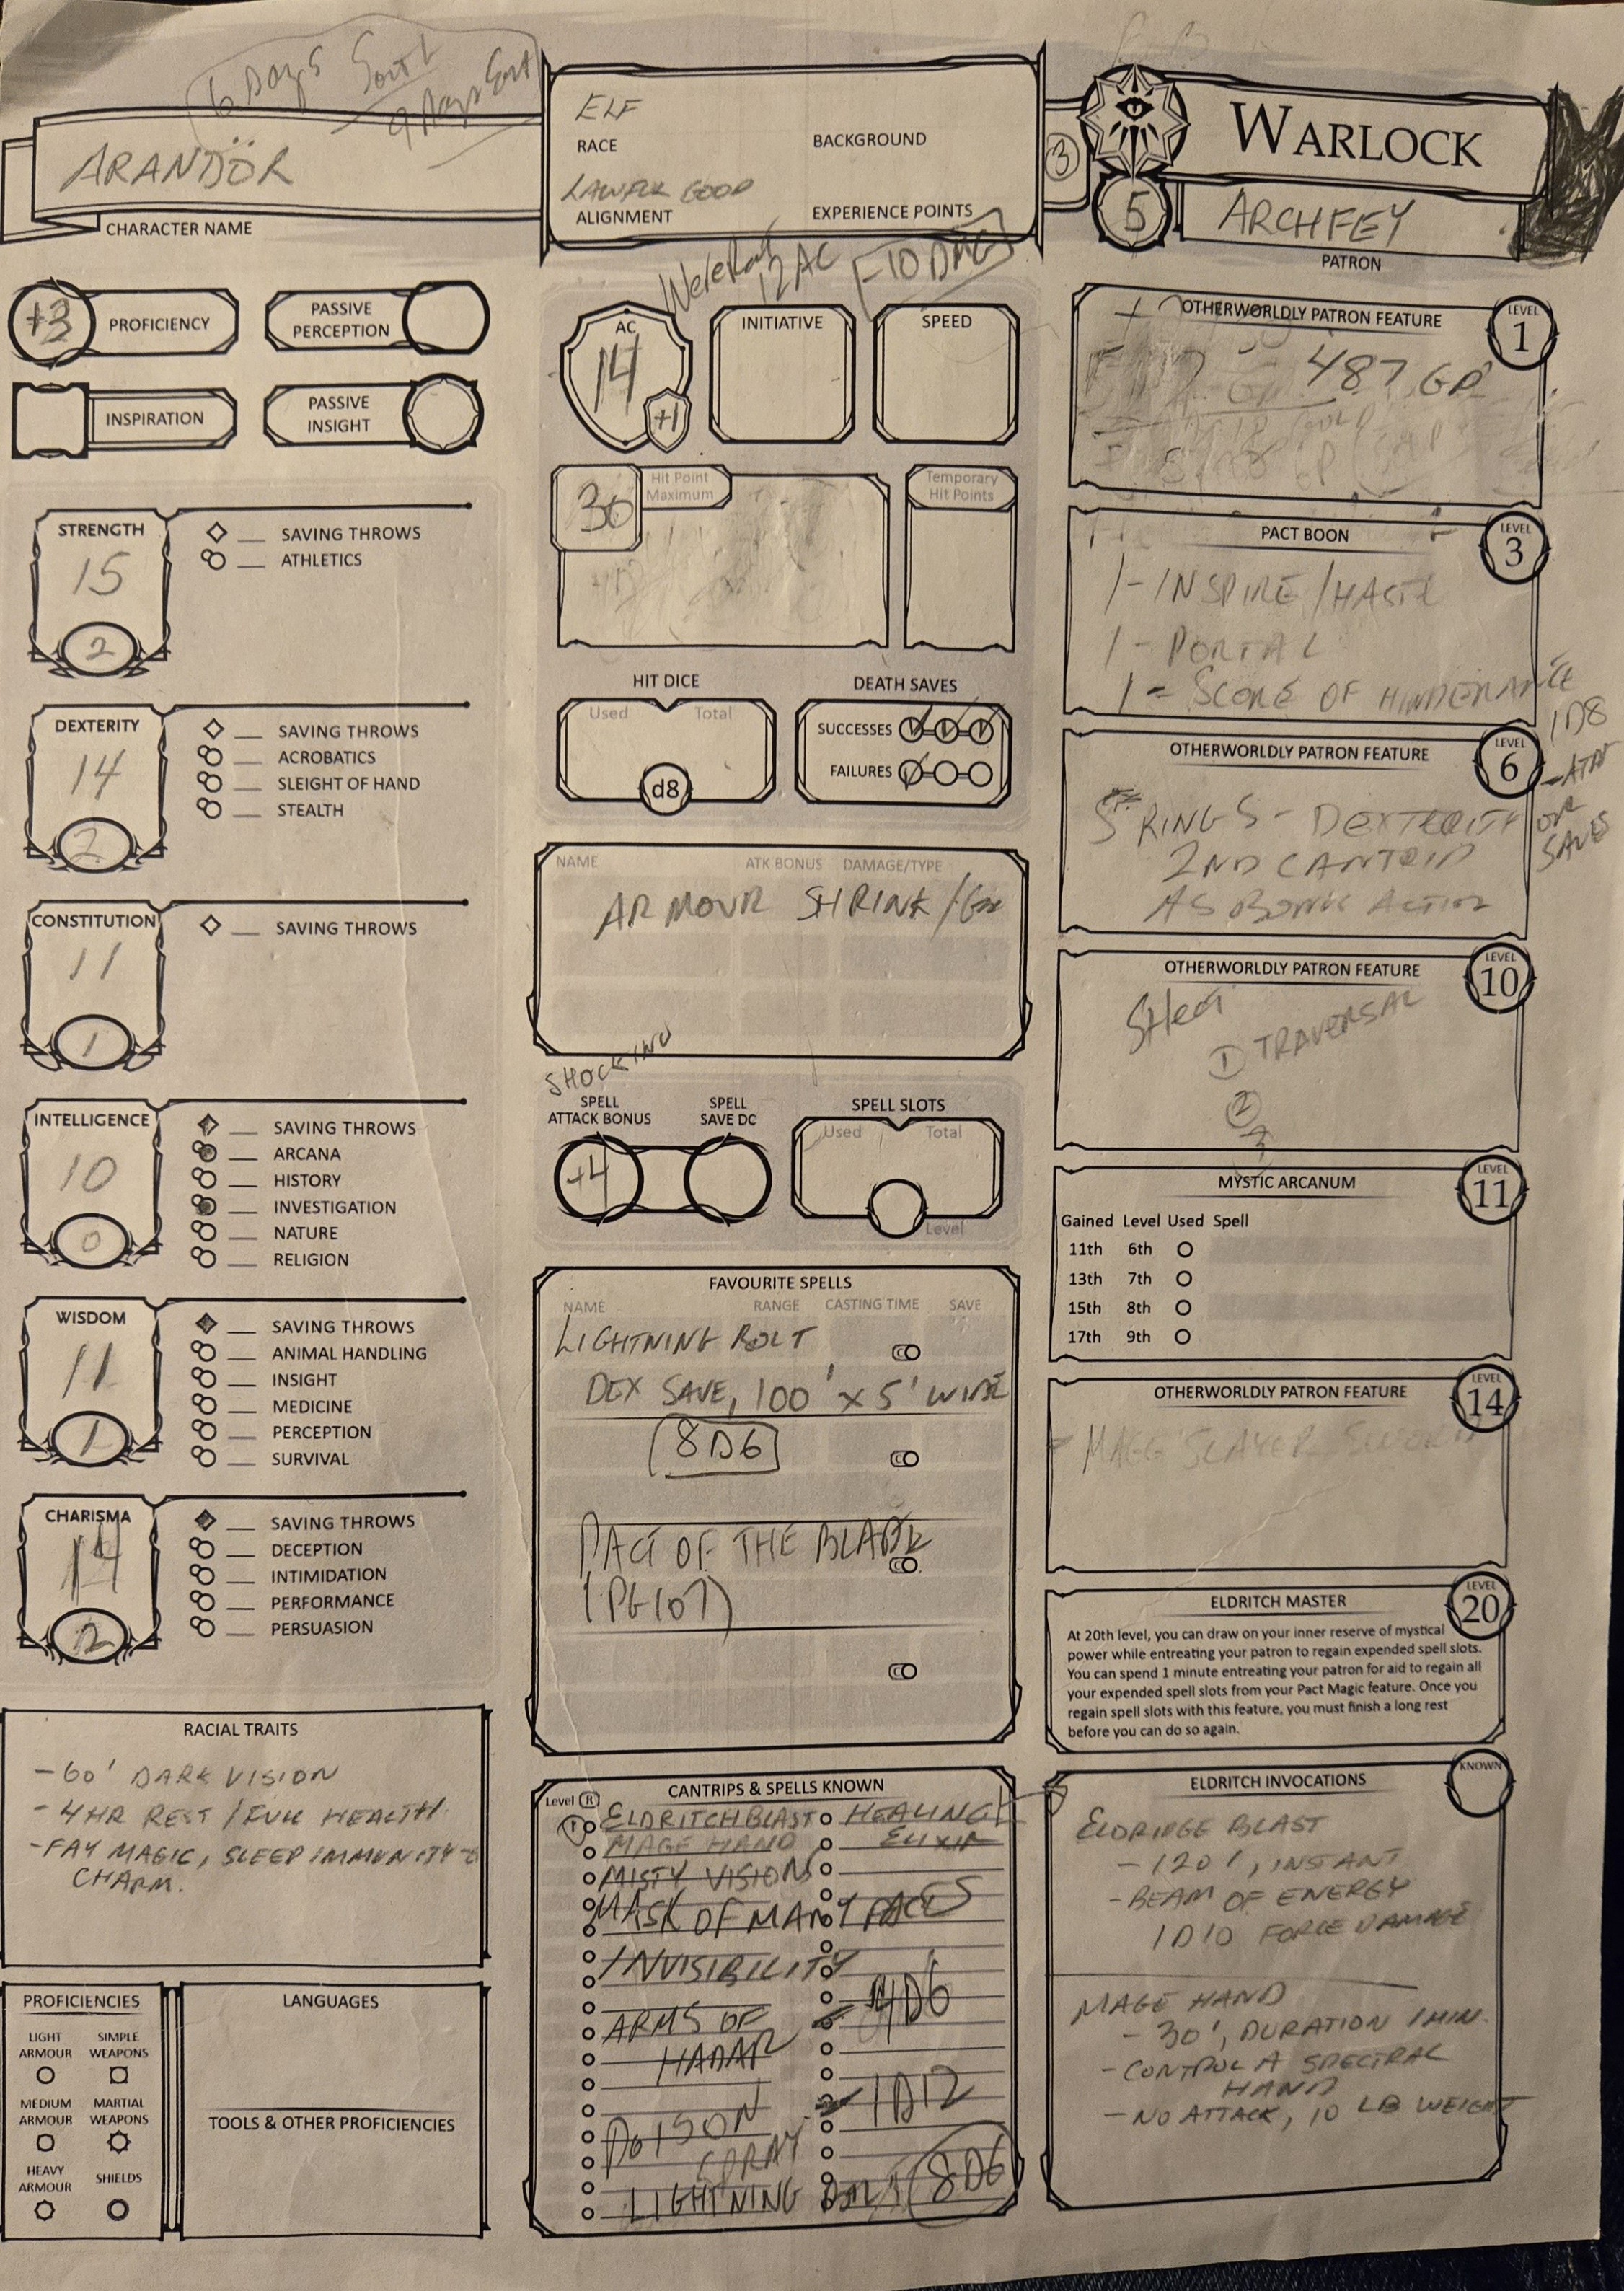 6 Days
9 Days East
ARANDÖR
CHARACTER NAME
ELF
RACE
BACKGROUND
LAWFUL GOOD
ALIGNMENT
EXPERIENCE POINTS
3
WARLOCK
5
ARCHFEY
PATRON
+3
PROFICIENCY
PASSIVE
PERCEPTION
INSPIRATION
PASSIVE
INSIGHT
STRENGTH
15
2
SAVING THROWS
ATHLETICS
DEXTERITY
14
2
SAVING THROWS
ACROBATICS
SLEIGHT OF HAND
STEALTH
CONSTITUTION
11
1
SAVING THROWS
INTELLIGENCE
10
0
SAVING THROWS
ARCANA
HISTORY
INVESTIGATION
NATURE
RELIGION
WISDOM
11
1
SAVING THROWS
ANIMAL HANDLING
INSIGHT
MEDICINE
PERCEPTION
SURVIVAL
CHARISMA
14
2
SAVING THROWS
DECEPTION
INTIMIDATION
PERFORMANCE
PERSUASION
RACIAL TRAITS
- 60' DARK VISION
- 4HR REST / FULL HEALTH
- FAY MAGIC, SLEEP IMMUNITY
CHARM.
PROFICIENCIES
LIGHT
ARMOUR
SIMPLE
WEAPONS
MEDIUM
ARMOUR
MARTIAL
WEAPONS
HEAVY
ARMOUR
SHIELDS
LANGUAGES
TOOLS & OTHER PROFICIENCIES
Wererat
12 AC
-10 DMG
AC
14
+1
INITIATIVE
SPEED
36
Hit Point
Maximum
Temporary
Hit Points
HIT DICE
Used
Total
d8
DEATH SAVES
SUCCESSES
FAILURES
NAME
ATK BONUS
DAMAGE/TYPE
ARMOUR SHRINK /
SHOCKING
SPELL
ATTACK BONUS
SPELL
SAVE DC
+4
SPELL SLOTS
Used
Total
Level
FAVOURITE SPELLS
NAME
RANGE
CASTING TIME
SAVE
LIGHTNING BOLT
DEX SAVE, 100' x 5' WIDE
8D6
PACT OF THE BLADE
(PG 107)
CANTRIPS & SPELLS KNOWN
Level
R
ELDRITCH BLAST
HEALING
MAGE HAND
ELIXIR
MISTY VISIONS
MASK OF MANY FACES
INVISIBILITY
ARMS OF
4D6
HADAR
POISON
1D12
SPRAY
LIGHTNING BOLT
8D6
OTHERWORLDLY PATRON FEATURE
LEVEL
1
487 GP
PACT BOON
LEVEL
3
1 - INSPIRE / HASTE
1 - PORTAL
1 - SCORE OF HINDERANCE
1D8
- ATK
OR
SAVES
OTHERWORLDLY PATRON FEATURE
LEVEL
6
RINGS - DEXTERITY
2ND CANTRIP
AS BONUS ACTION
OTHERWORLDLY PATRON FEATURE
LEVEL
10
① TRAVERSAL
②
3
MYSTIC ARCANUM
LEVEL
11
Gained Level Used Spell
11th 6th
13th 7th
15th 8th
17th 9th
OTHERWORLDLY PATRON FEATURE
LEVEL
14
- MAGE SLAYER SWORD
ELDRITCH MASTER
LEVEL
20
At 20th level, you can draw on your inner reserve of mystical
power while entreating your patron to regain expended spell slots.
You can spend 1 minute entreating your patron for aid to regain all
your expended spell slots from your Pact Magic feature. Once you
regain spell slots with this feature, you must finish a long rest
before you can do so again.
ELDRITCH INVOCATIONS
KNOWN
ELDRIDGE BLAST
- 120', INSTANT
- BEAM OF ENERGY
1D10 FORCE DAMAGE
MAGE HAND
- 30', DURATION 1 MIN.
- CONTROL A SPECTRAL
HAND
- NO ATTACK, 10 LB WEIGHT